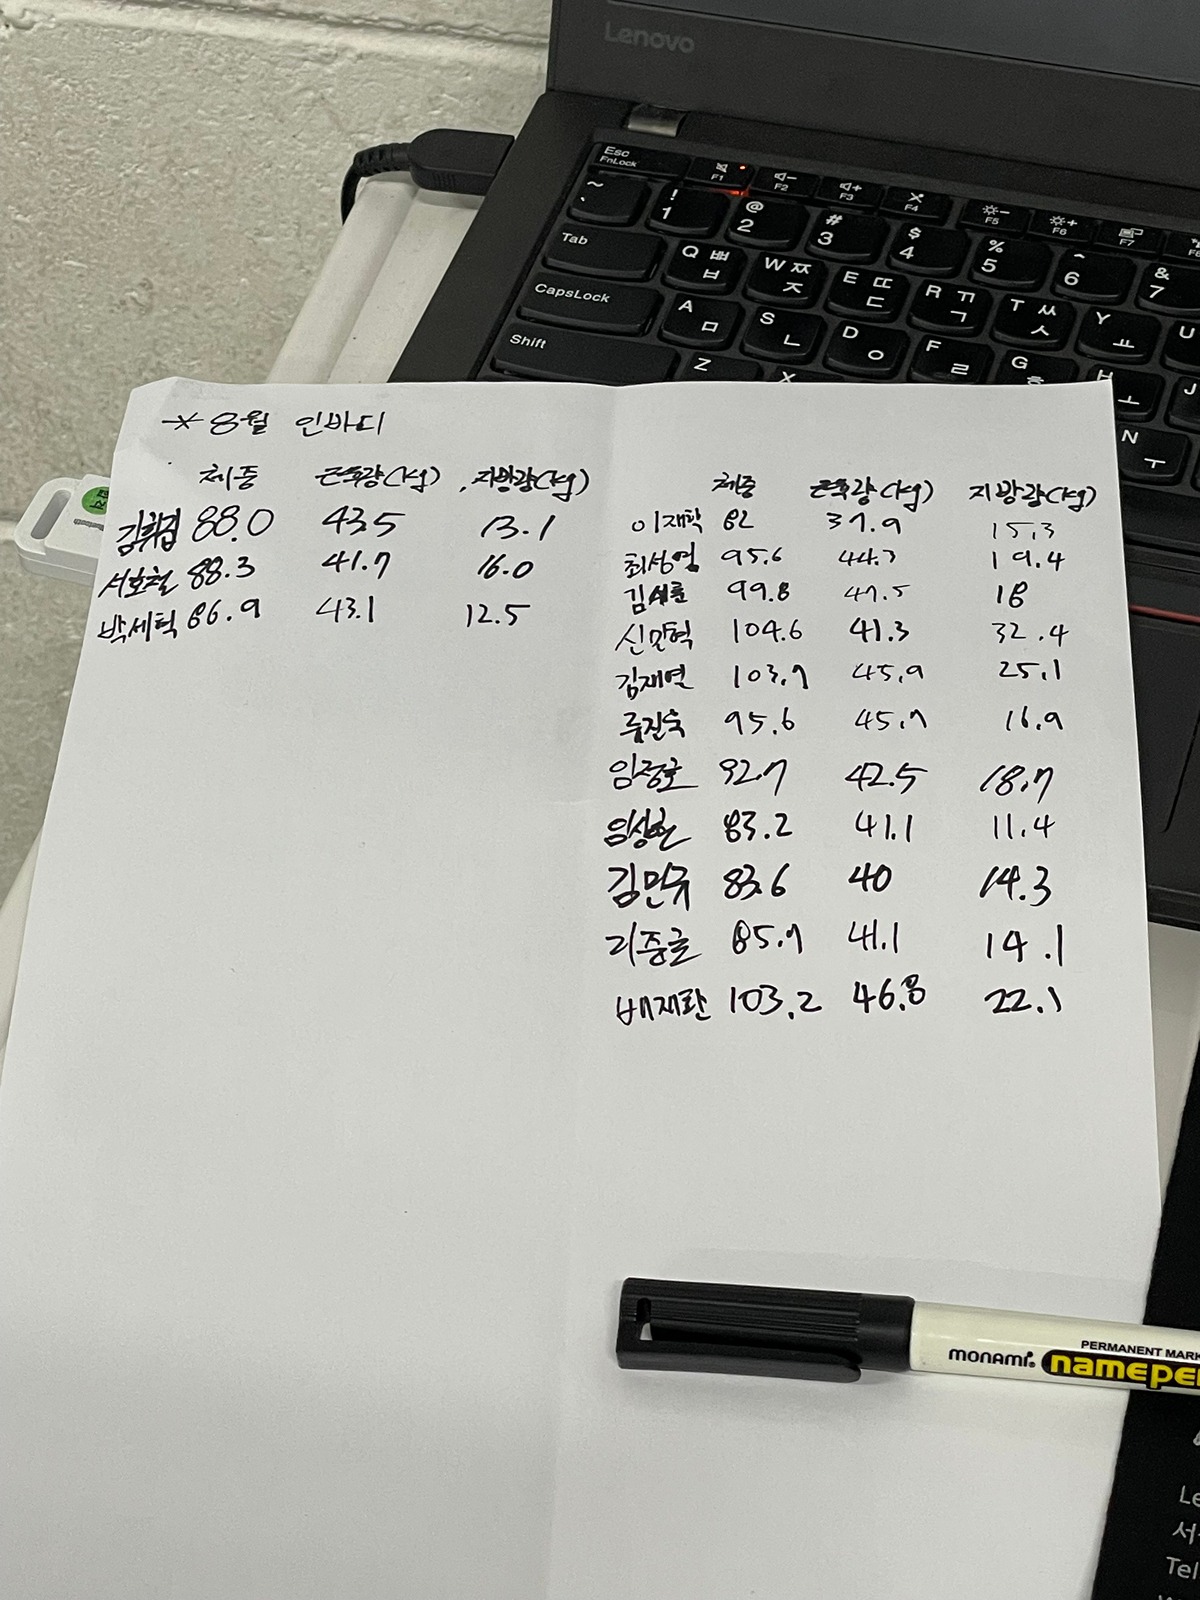 Lenovo
Esc
FnLock
F1
F2
F3
F4
F5
F6
F7
~ `
! 1
@ 2
# 3
$ 4
% 5
^ 6
& 7
Tab
Q ㅃ ㅂ
W ㅉ ㅈ
E ㄸ ㄷ
R ㄲ ㄱ
T ㅆ ㅅ
Y ㅛ
U
CapsLock
A ㅁ
S ㄴ
D ㅇ
F ㄹ
G ㅎ
H ㅗ
J
Shift
Z
X
N ㅜ
* 8월 인바디
체중 근육량(kg) 지방량(kg)
김휘집 88.0 43.5 13.1
서호철 88.3 41.7 16.0
박세혁 86.9 43.1 12.5
체중 근육량(kg) 지방량(kg)
이재학 82 37.9 15.3
최성영 95.6 44.7 19.4
김 99.8 47.5 18
신민혁 104.6 41.3 32.4
김재열 103.7 45.9 25.1
류진욱 95.6 45.7 16.9
임정호 92.7 42.5 18.7
임상현 83.2 41.1 11.4
김민규 83.6 40 14.3
리중글 85.7 41.1 14.1
배재환 103.2 46.8 22.1
PERMANENT MARK
monami namepe
Le
서
Tel